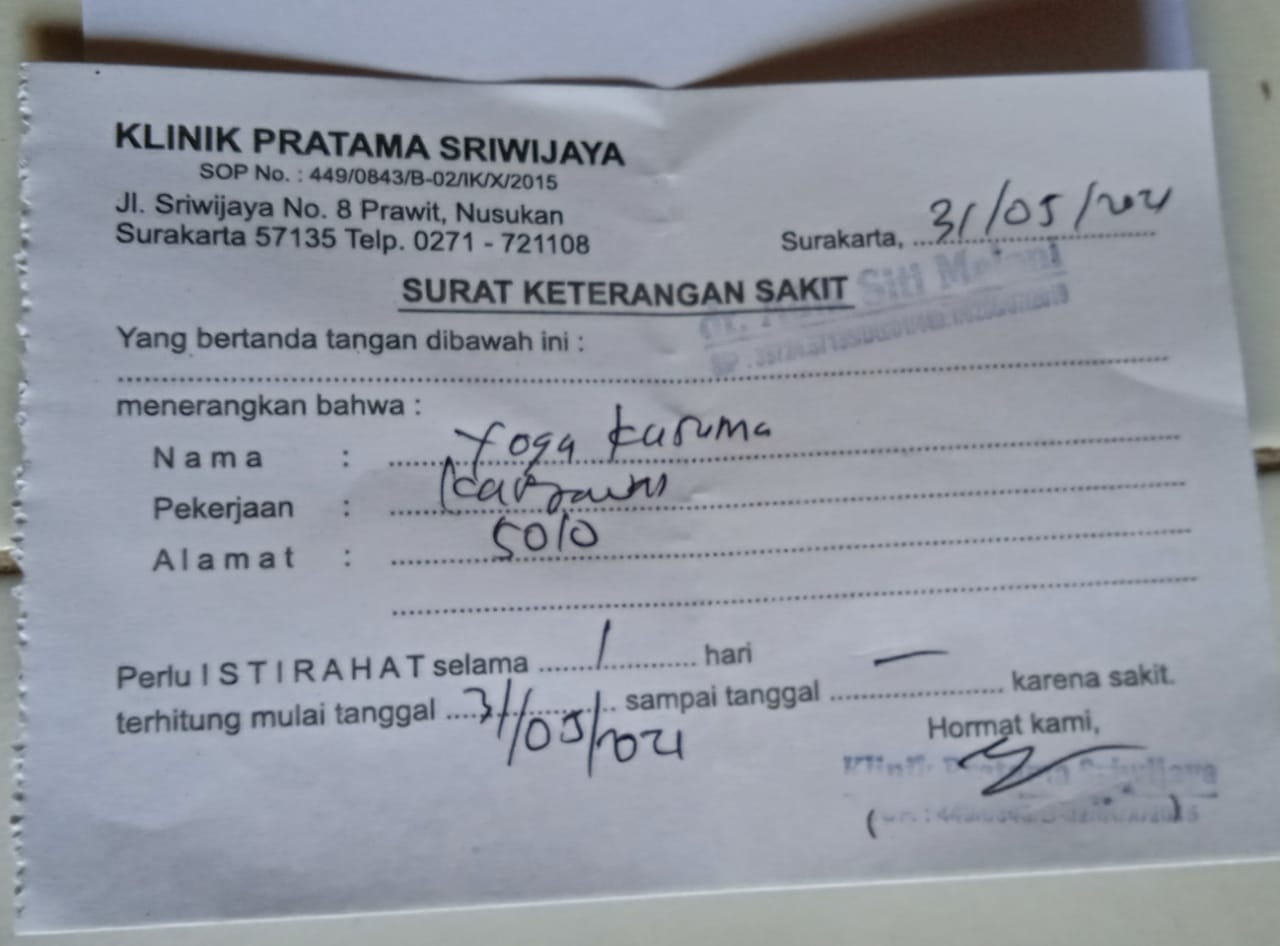 KLINIK PRATAMA SRIWIJAYA
SOP No. : 449/0843/B-02/IK/X/2015
Jl. Sriwijaya No. 8 Prawit, Nusukan
Surakarta 57135 Telp. 0271 - 721108
Surakarta, 31/05/2021
SURAT KETERANGAN SAKIT
dr. Siti
Yang bertanda tangan dibawah ini :
menerangkan bahwa :
Nama : Yoga Kusuma
Pekerjaan : Karyawan
Alamat : Solo
Perlu ISTIRAHAT selama 1 hari
terhitung mulai tanggal 31/05/2021 sampai tanggal — karena sakit.
Hormat kami,
Klinik Pratama Sriwijaya